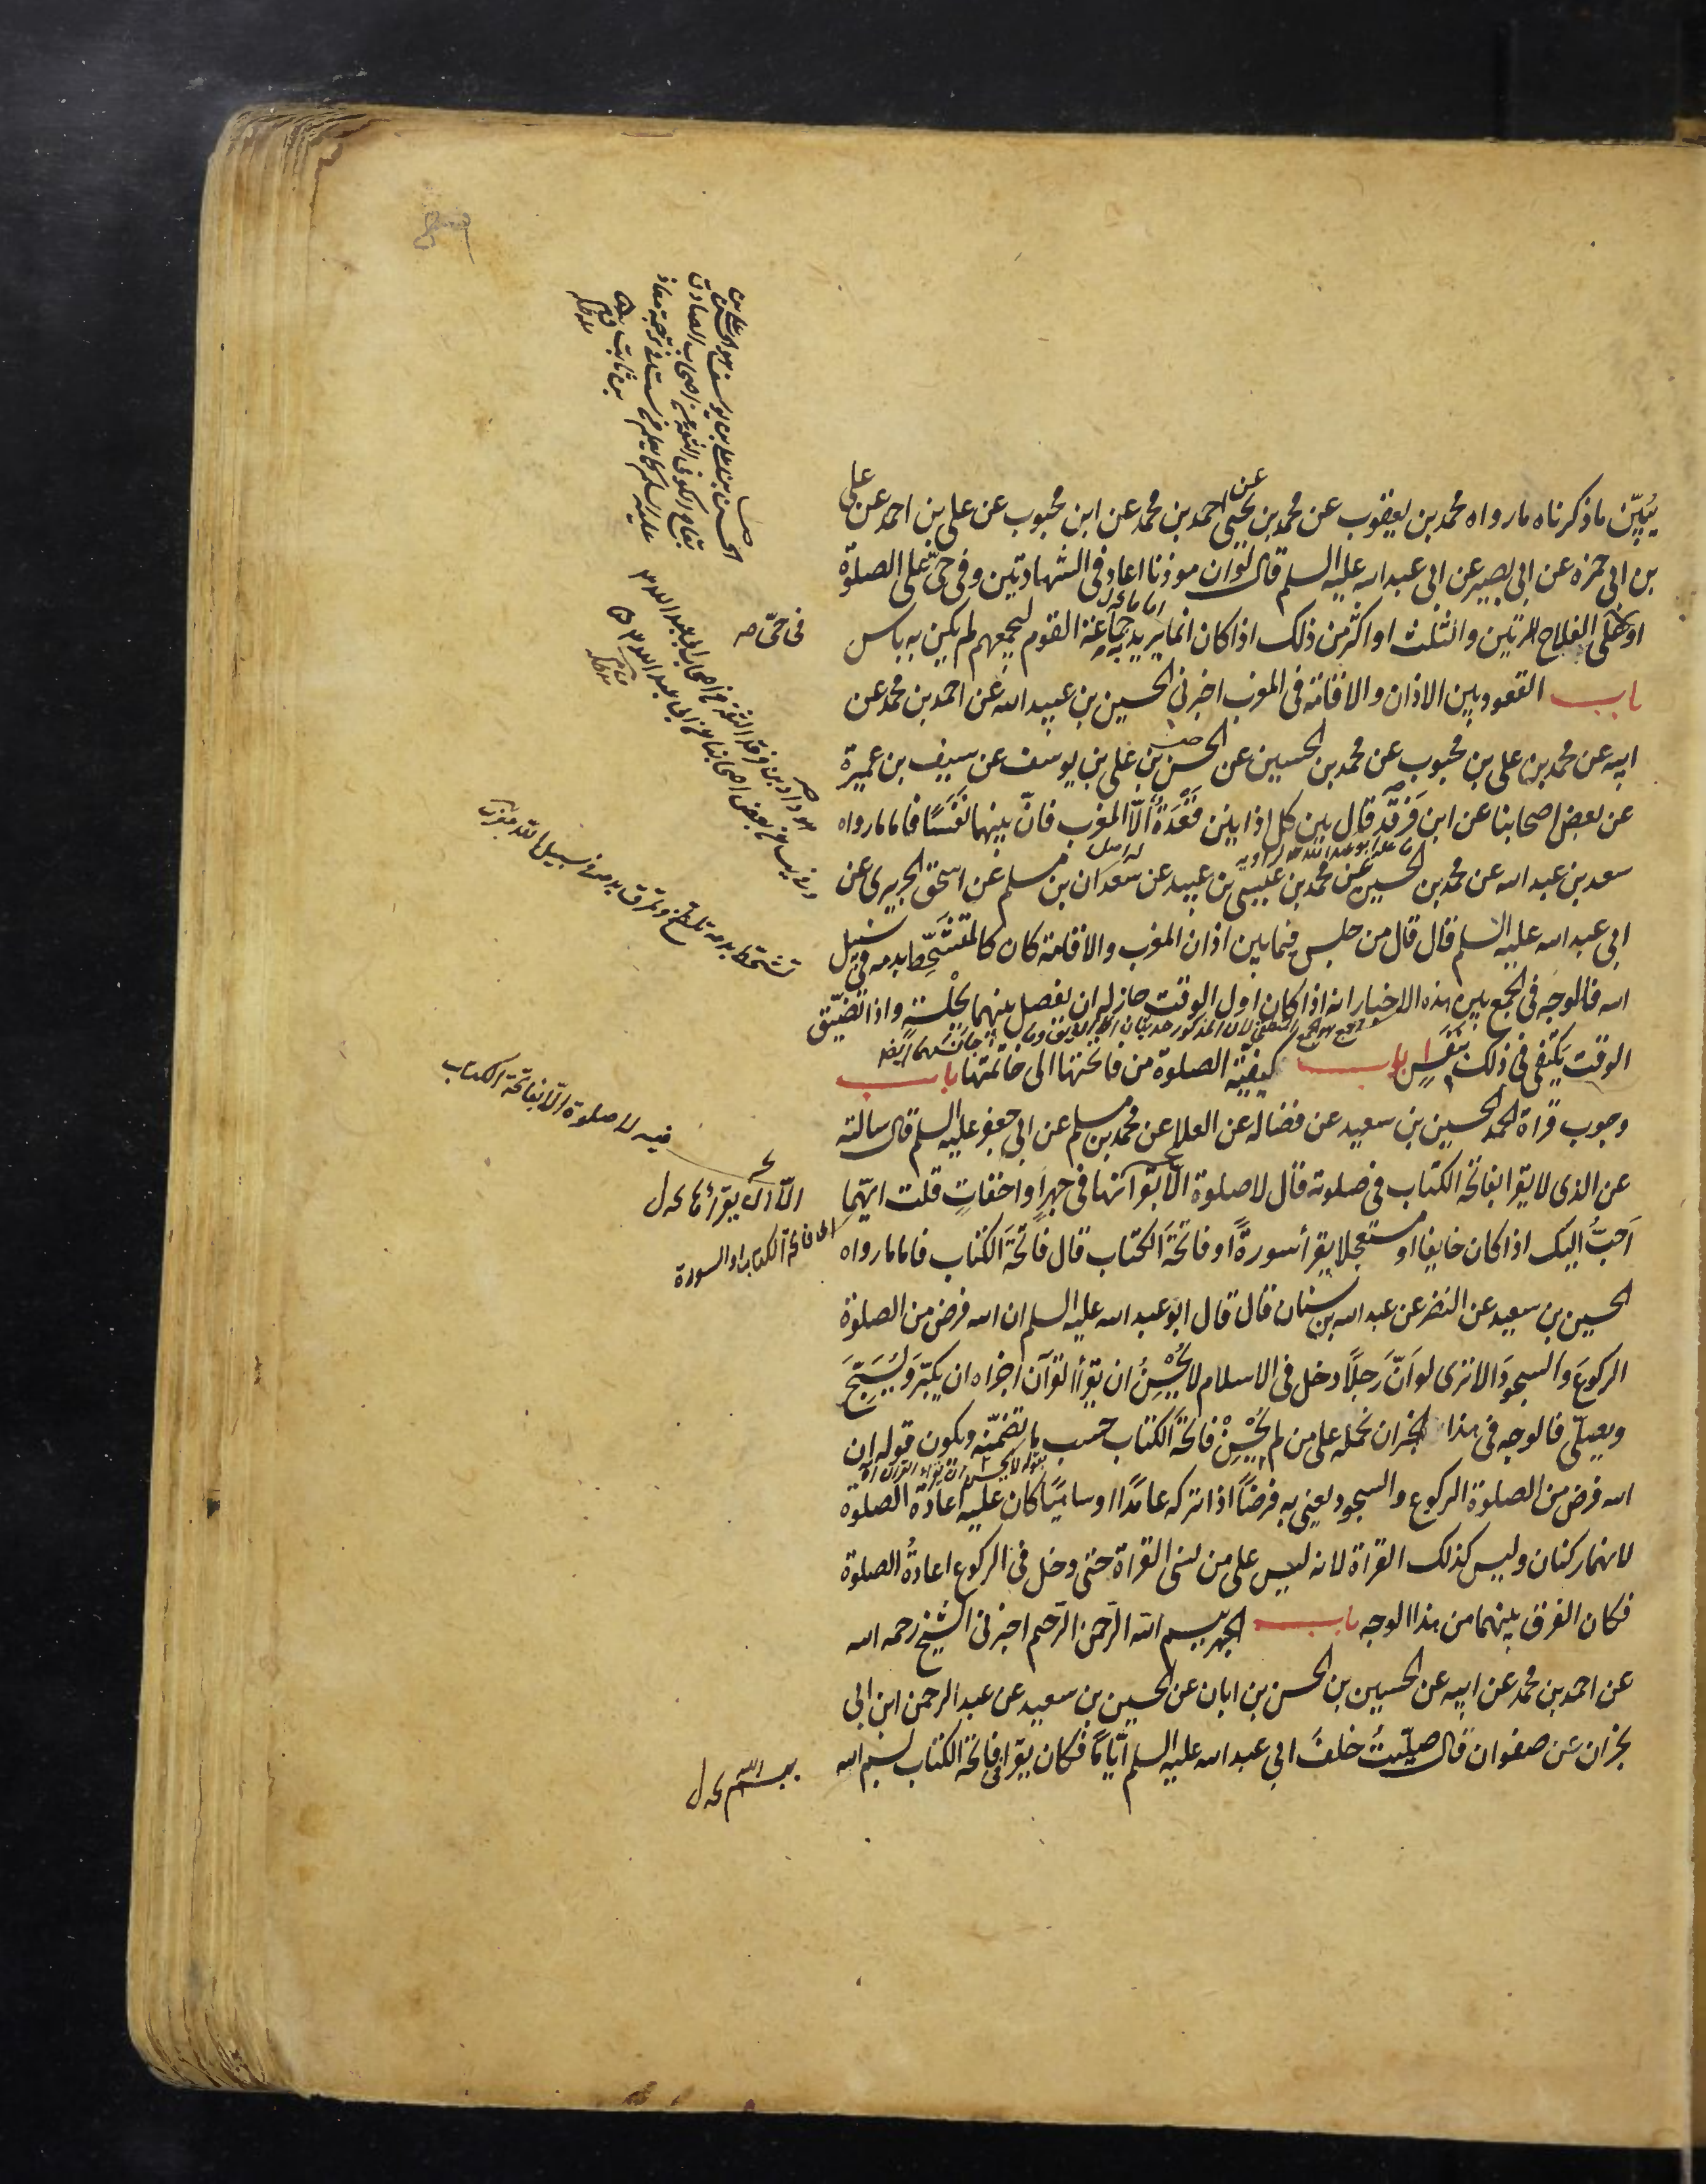 يُبيّن ما ذكرناه ما رواه محمد بن يعقوب عن محمد بن يحيى عن احمد بن محمد عن ابن محبوب عن على بن احمد عن على
بن ابى حمزة عن ابى بصير عن ابى عبد الله عليه السلم قال لو ان موذنا اعاد فى الشهادتين وفى حىّ على الصلوة
او على الفلاح المرتين والثلث او اكثر من ذلك اذا كان انما يريد به جماعة القوم ليجمعهم لم يكن به باس
باب القعود بين الاذان والاقامة فى المغرب اخبرنى الحسين بن عبيد الله عن احمد بن محمد عن
ابيه عن محمد بن على بن محبوب عن محمد بن الحسين عن الحسن بن على بن يوسف عن سيف بن عميرة
عن بعض اصحابنا عن ابن فرقد قال بين كل اذانين قَعْدَةٌ الّا المغرب فانّ بينهما نَفَسًا فاما ما رواه
سعد بن عبد الله عن محمد بن الحسين عن محمد بن عيسى بن عبيد عن سعدان بن مسلم عن اسحق الجريرى عن
ابى عبد الله عليه السلم قال قال من جلس فيما بين اذان المغرب والاقامة كان كالمتشَحِّط بدمه فى سبيل
الله فالوجه فى الجمع بين هذه الاخبار انه اذا كان اول الوقت جاز له ان يفصل بينهما بجلسةٍ واذا تضيّق
الوقت يكتفى فى ذلك بنَفَسٍ ابواب كيفيّة الصلوة من فاتحتها الى خاتمتها باب
وجوب قراة الحمد الحسين بن سعيد عن فضاله عن العلا عن محمد بن مسلم عن ابى جعفر عليه السلم قال سالته
عن الذى لا يقرا بفاتحة الكتاب فى صلوته قال لا صلوة الّا بقرآتها فى جهرٍ او اخفاتٍ قلت ايّهما
اَحَبُّ اليك اذا كان خايفا او مستعجلا يقرأ سورةً او فاتحةَ الكتاب قال فاتحةَ الكتاب فاما ما رواه
الحسين بن سعيد عن النضر عن عبد الله بن سنان قال قال ابو عبد الله عليه السلم ان الله فرض من الصلوة
الركوعَ والسجودَ الا ترى لو انّ رَجلًا دخل فى الاسلام لا يُحْسِنُ ان يقرأ القرآن اجزاه ان يكبّر ويُسَبّحَ
ويصلّى فالوجه فى هذا الخبر ان نحمله على من لم يُحْسِنْ فاتحةَ الكتاب حسب ما تضمّنه ويكون قوله ان
الله فرض من الصلوة الركوع والسجود يعنى به فرضًا اذا تركه عامدًا او ساهيًا كان عليه اعادة الصلوة
لانهما ركنان وليس كذلك القراة لانه ليس على من نسى القراة حتى دخل فى الركوع اعادةُ الصلوة
فكان الفرق بينهما من هذا الوجه باب الجهر ببسم الله الرّحمن الرّحيم اخبرنى الشيخ رحمه الله
عن احمد بن محمد عن ابيه عن الحسين بن الحسن بن ابان عن الحسين بن سعيد عن عبد الرحمن ابن ابى
نجران عن صفوان قال صلّيتُ خلفَ ابى عبد الله عليه السلم ايّامًا فكان يقرا فى فاتحة الكتاب بسم الله
فى حىّ
تشحّط بدمه تلطّخ
فيه لا صلوة الّا بفاتحة الكتاب
الّا ان يقرأ بها
فاتحة الكتاب او السورة
ببسم الله